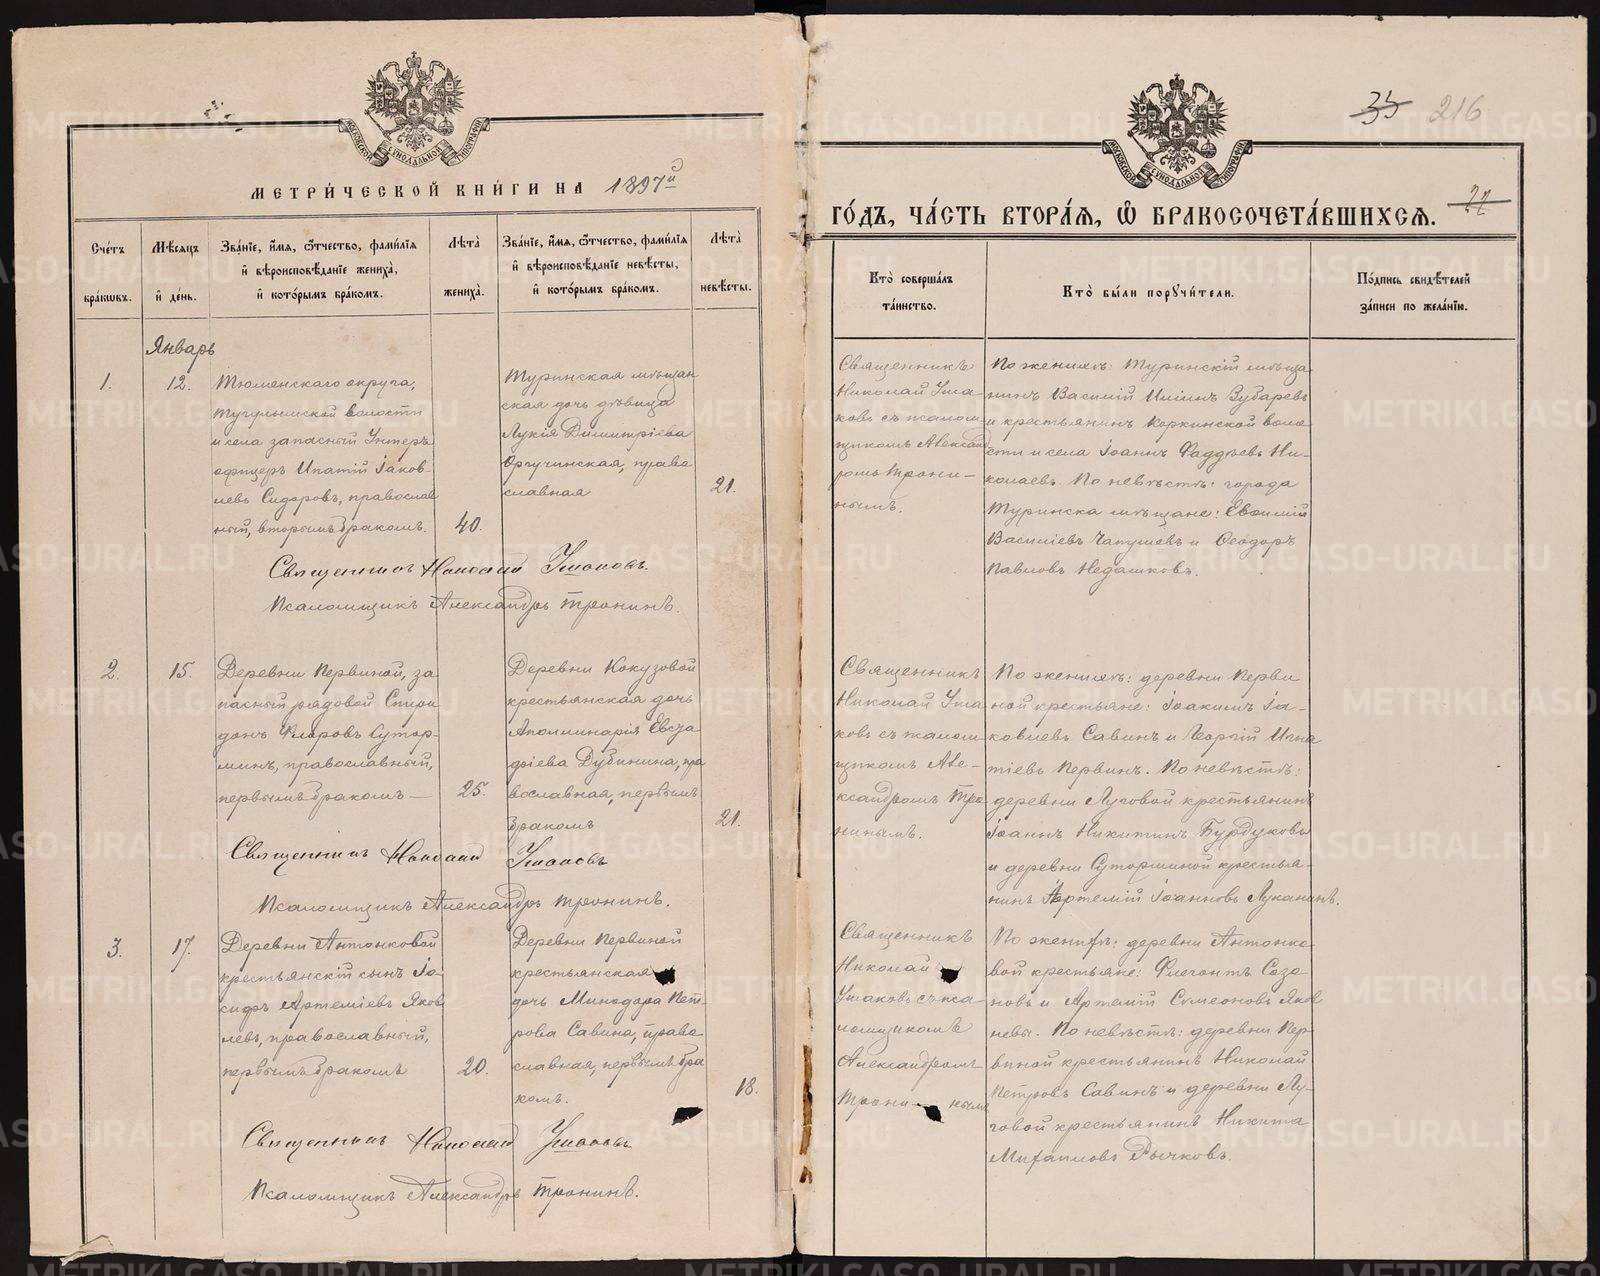 МЕТРИ́ЧЕСКОЙ КНИ́ГИ НА 1897й
Сче́тъ бра́кѡвъ.
Мѣ́сяцъ и҆ де́нь.
Зва́нїе, и҆́мя, ѻ҆́тчество, фами́лїѧ и҆ вѣроисповѣ́данїе жениха̀, и҆ кото́рымъ бра́комъ.
Лѣ́та жениха̀.
Зва́нїе, и҆́мя, ѻ҆́тчество, фами́лїѧ и҆ вѣроисповѣ́данїе невѣ́сты, и҆ кото́рымъ бра́комъ.
Лѣ́та невѣ́сты.
Январь
1.
12.
Тюменскаго округа,
Тугулымской волости
и села запасный Унтеръ
офицеръ Ипатій Іаков
левъ Сидоровъ, православ
ный, вторымъ бракомъ.
40.
Туринская мѣщан
ская дочь дѣвица
Лукія Димитріева
православная
21.
Священникъ Николай Ушаковъ.
Псаломщикъ Александръ Тронинъ.
2.
15.
Деревни Первиной, за
пасный рядовой Спири
донъ Флоровъ Сутор-
минъ, православный,
первымъ бракомъ—
25.
Деревни Кокузовой
крестьянская дочь
Аполлинарія Евсга
фіева Дубинина, пра
вославная, первымъ
бракомъ
21.
Священникъ Николай Ушаковъ
Псаломщикъ Александръ Тронинъ.
3.
17.
Деревни Антонковой
крестьянскій сынъ Іо-
сифъ Артеміевъ Яков
левъ, православный,
первымъ бракомъ
20.
Деревни Первиной
крестьянская
дочь Минодора Пет-
рова Савина, право
славная, первымъ бра
комъ.
18.
Священникъ Николай Ушаковъ
Псаломщикъ Александръ Тронинъ.
35 216
22
ГО́ДЪ, ЧА́СТЬ ВТОРА́Ѧ, Ѽ БРАКОСОЧЕТА́ВШИХСѦ.
Кто̀ соверша́лъ та́инство.
Кто̀ бы́ли порꙋчи́тели.
По́дпись свидѣ́телей за́писи по жела́нїю.
Священникъ
Николай Уша
ковъ съ псалом
щикомъ Александ
ромъ Трони-
нымъ.
По женихѣ: Туринскій мѣща
нинъ Василій Илiинъ Зубаревъ
и крестьянинъ Коркинской воло
сти и села Іоаннъ Фаддѣевъ Ни-
колаевъ. По невѣстѣ: города
Туринска мѣщане: Евѳимій
Василіевъ Чапушевъ и Ѳеодоръ
Павловъ Недашковъ.
Священникъ
Николай Уша
ковъ съ псалом
щикомъ Але-
ксандромъ Тро
нинымъ.
По женихѣ: деревни Перви
ной крестьяне: Іоакимъ Іа-
ковлевъ Савинъ и Георгій Игна
тіевъ Первинъ. По невѣстѣ:
деревни Луговой крестьянинъ
Іоаннъ Никитинъ Бурдуковъ
и деревни Суторминой крестья-
нинъ Артемій Іоанновъ Луканинъ.
Священникъ
Николай
Ушаковъ съ пса
ломщикомъ
Александромъ
Трони- нымъ
По женихѣ: деревни Антонко
вой крестьяне: Флегонтъ Созо
новъ и Артемій Симеоновъ Яков
левы. По невѣстѣ: деревни Пер
виной крестьянинъ Николай
Петровъ Савинъ и деревни Лу-
говой крестьянинъ Никита
Михаиловъ Рычковъ.